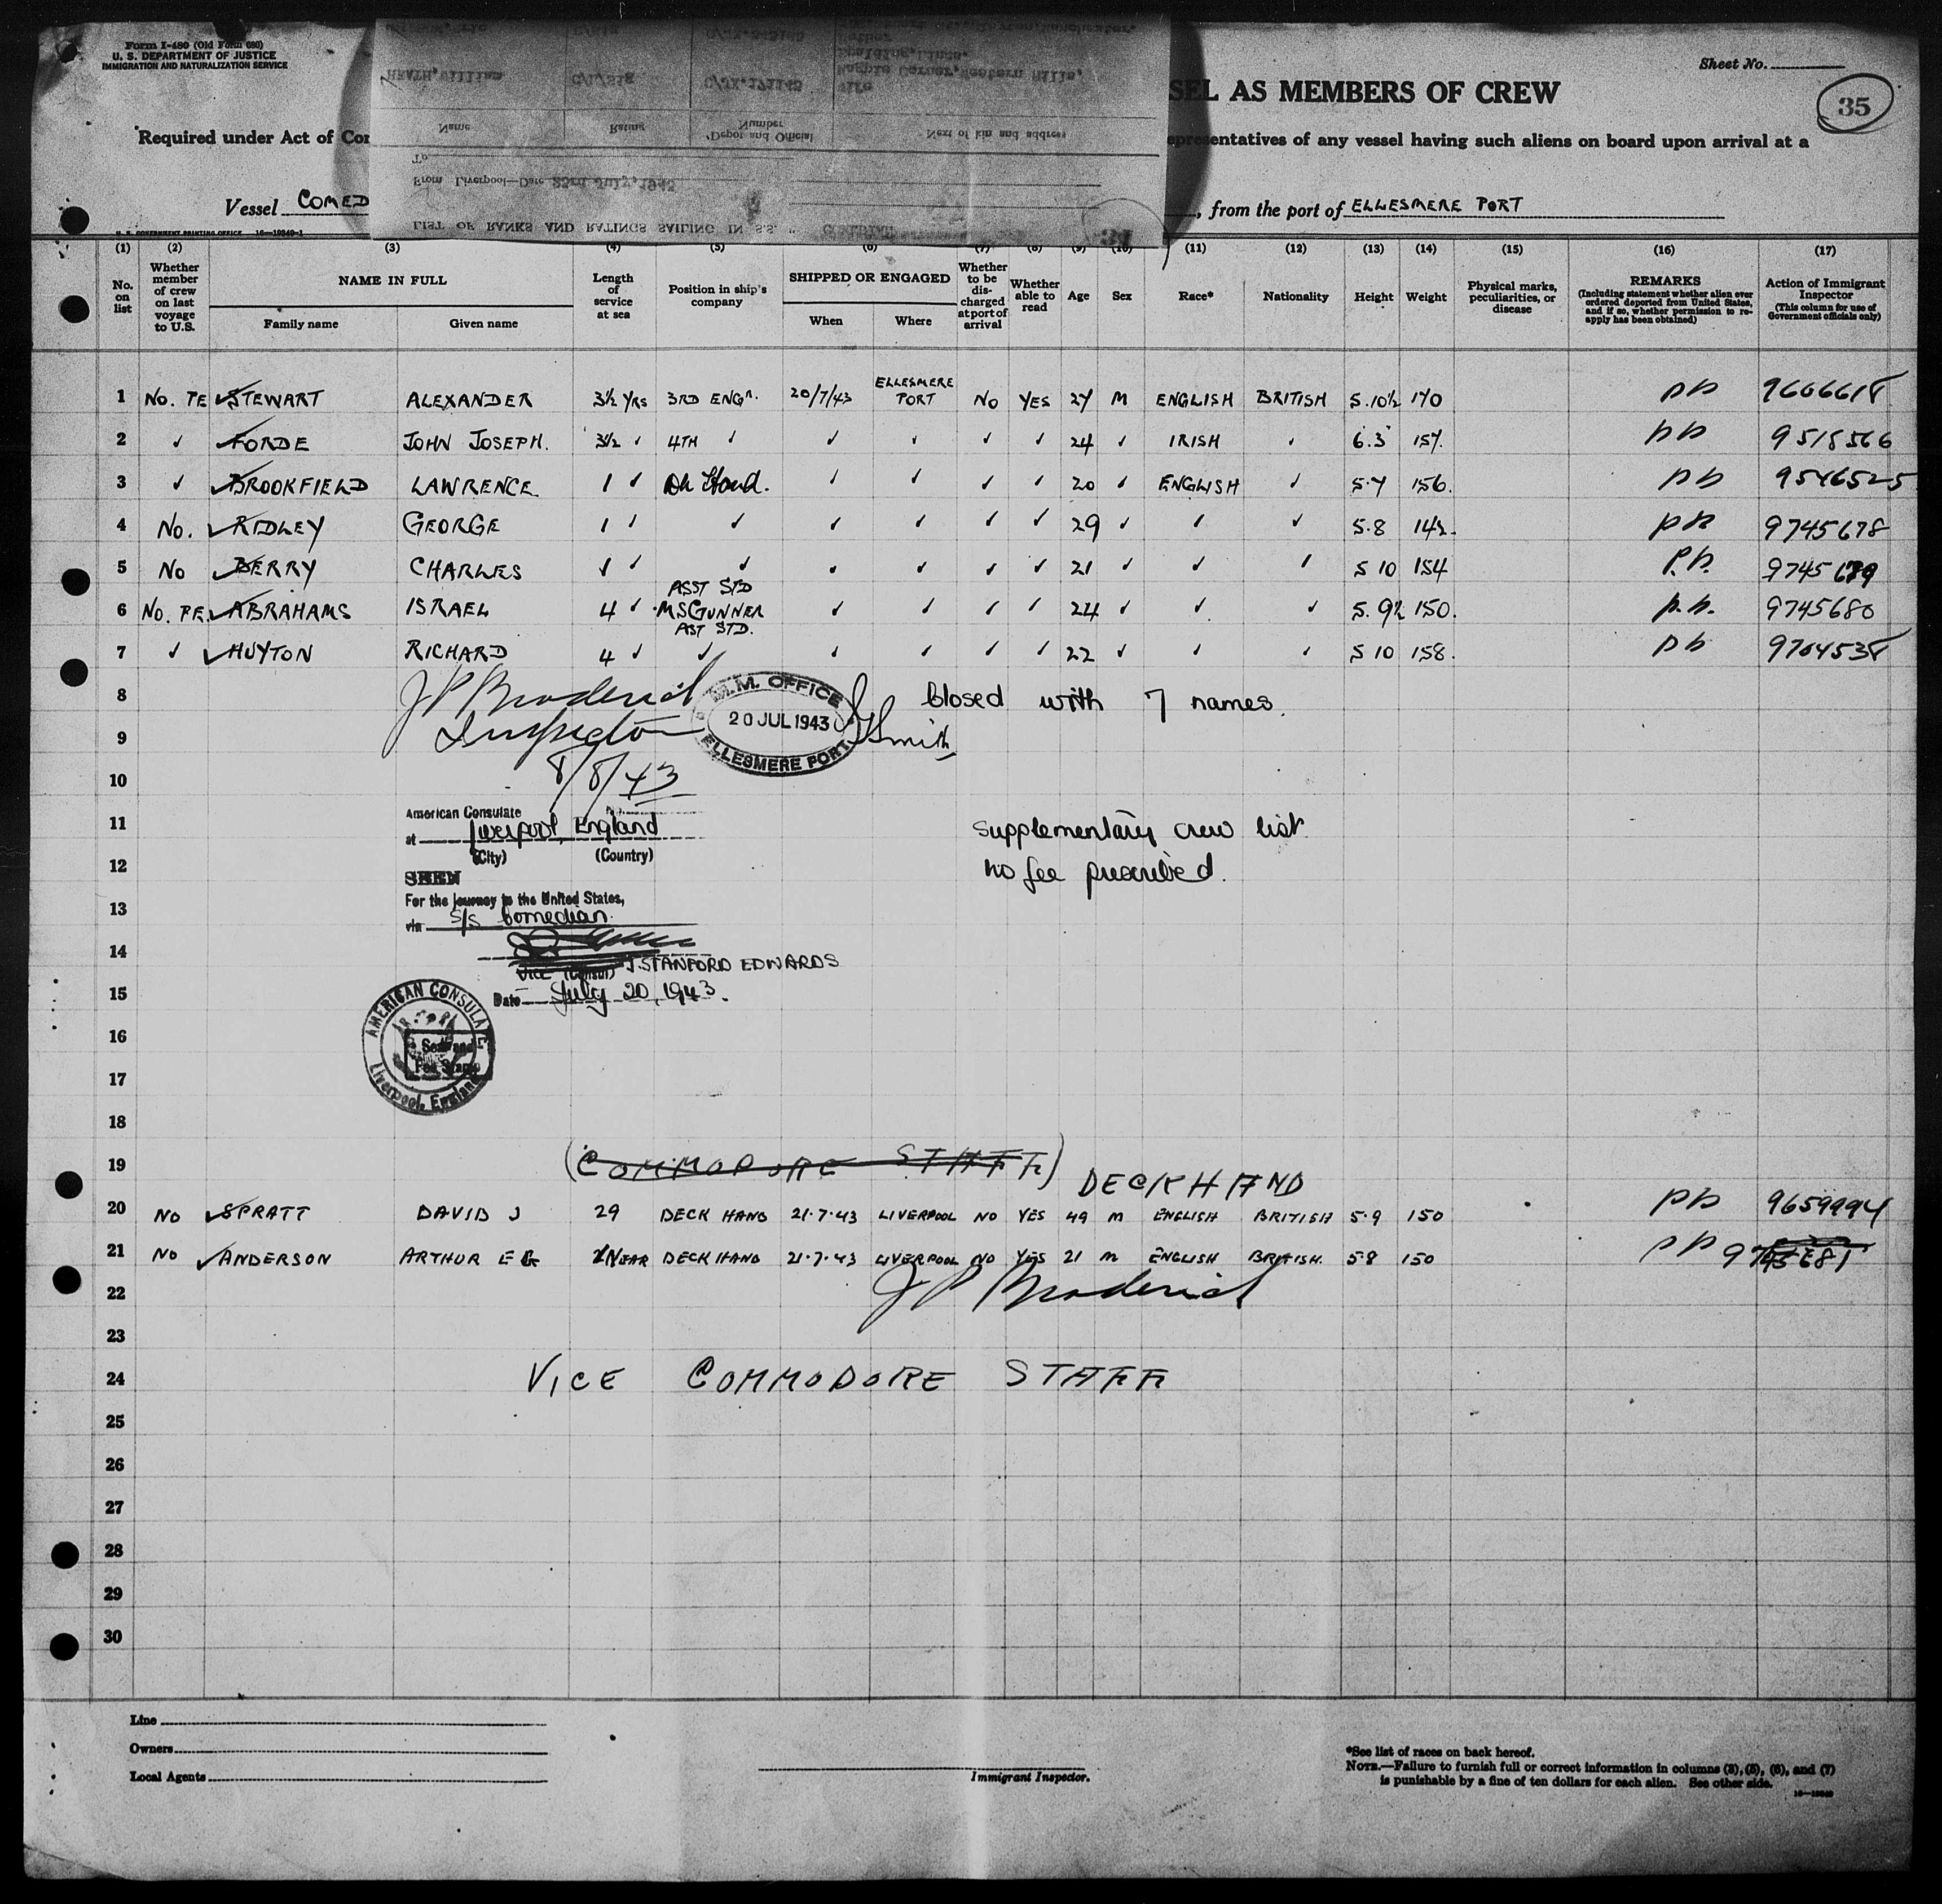 Form I-480 (Old Form 680)
U. S. DEPARTMENT OF JUSTICE
IMMIGRATION AND NATURALIZATION SERVICE
Sheet No.
35
SEL AS MEMBERS OF CREW
Required under Act of Con
epresentatives of any vessel having such aliens on board upon arrival at a
Vessel COMED
, from the port of ELLESMERE PORT
U. S. GOVERNMENT PRINTING OFFICE 16—19840-1
LIST OF RANKS AND RATINGS SAILING IN S.S. "
From Liverpool—Date 23rd July, 1943
To
Name Rating Depot and Official Number Next of kin and address
HEATH, William
(1) (2) (3) (4) (5) (6) (7) (8) (9) (10) (11) (12) (13) (14) (15) (16) (17)
No. on list
Whether member of crew on last voyage to U.S.
NAME IN FULL
Family name Given name
Length of service at sea
Position in ship's company
SHIPPED OR ENGAGED
When Where
Whether to be discharged at port of arrival
Whether able to read
Age Sex Race* Nationality Height Weight
Physical marks, peculiarities, or disease
REMARKS
(Including statement whether alien ever ordered deported from United States, and if so, whether permission to reapply has been obtained)
Action of Immigrant Inspector
(This column for use of Government officials only)
1 No. PE STEWART ALEXANDER 3½ YRS 3RD ENGR. 20/7/43 ELLESMERE PORT NO YES 27 M ENGLISH BRITISH 5.10½ 170 PP 9606618
2 ✓ FORDE JOHN JOSEPH. 3½ ✓ 4TH ✓ ✓ ✓ ✓ ✓ 24 ✓ IRISH ✓ 6.3 157. PP 9518566
3 ✓ BROOKFIELD LAWRENCE 1 ✓ Dk Hand. ✓ ✓ ✓ ✓ 20 ✓ ENGLISH ✓ 5.7 156. PP 9546525
4 No. RIDLEY GEORGE 1 ✓ ✓ ✓ ✓ ✓ ✓ 29 ✓ ✓ ✓ 5.8 142. PP 9745678
5 No BERRY CHARLES 1 ✓ ✓ ✓ ✓ ✓ ✓ 21 ✓ ✓ ✓ 5 10 154 P.P. 9745679
6 No. PE. ABRAHAMS ISRAEL 4 ✓ ASST STD MS GUNNER ✓ ✓ ✓ ✓ 24 ✓ ✓ ✓ 5. 9½ 150. P.P. 9745680
7 ✓ HUYTON RICHARD 4 ✓ AST STD. ✓ ✓ ✓ ✓ ✓ 22 ✓ ✓ ✓ 5 10 158. PP 9704538
8 J P Broderick M.M. OFFICE Closed with 7 names.
9 Inspector 20 JUL 1943 Smith
ELLESMERE PORT
10 8/8/43
American Consulate
11 at Liverpool, England Supplementary crew list
(City) (Country)
12 no fee prescribed.
SEEN
13 For the journey to the United States,
via S/S Comedian.
14 Vice (Consul) J. STANFORD EDWARDS
15 Date July 20, 1943.
AMERICAN CONSULATE
16
17
Liverpool, England
18
19 (COMMODORE STAFF) DECK HAND
20 NO SPRATT DAVID J 29 DECK HAND 21.7.43 LIVERPOOL NO YES 49 M ENGLISH BRITISH 5.9 150 PP 9659994
21 NO ANDERSON ARTHUR E G 1 YEAR DECK HAND 21.7.43 LIVERPOOL NO YES 21 M ENGLISH BRITISH. 5.8 150 PP 9745681
22 J P Broderick
23
24 VICE COMMODORE STAFF
25
26
27
28
29
30
Line
Owners
Local Agents
Immigrant Inspector.
*See list of races on back hereof.
NOTE.—Failure to furnish full or correct information in columns (3), (5), (6), and (7)
is punishable by a fine of ten dollars for each alien. See other side.